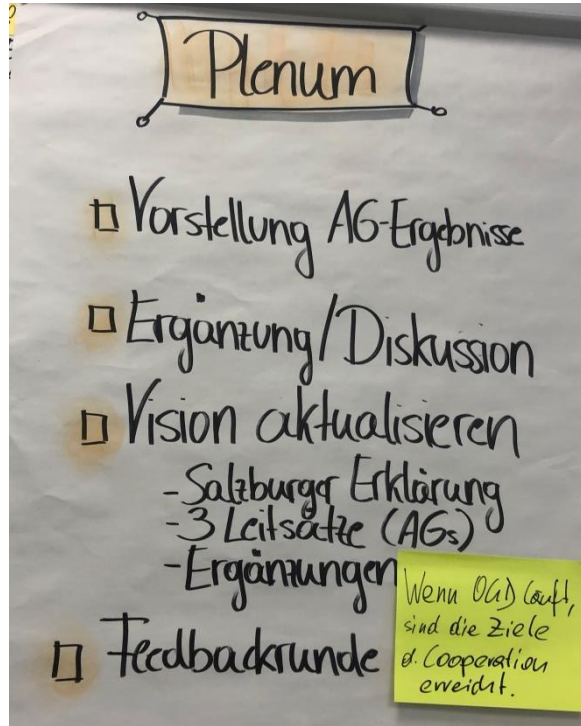 Plenum
Vorstellung AG-Ergebnisse
Ergänzung/Diskussion
Vision aktualisieren
- Salzburger Erklärung
- 3 Leitsätze (AGs)
- Ergänzungen
Feedbackrunde
Wenn OGD läuft,
sind die Ziele
d. Cooperation
erreicht.